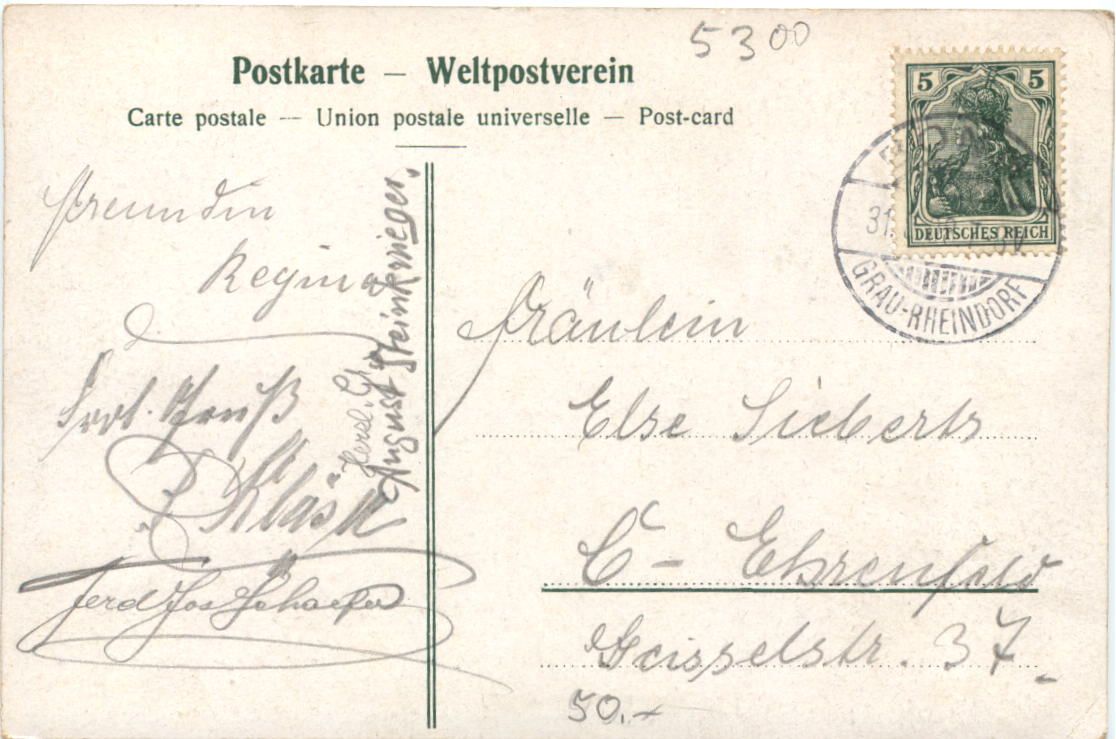 5300
Postkarte – Weltpostverein
Carte postale — Union postale universelle — Post-card
5 5
DEUTSCHES REICH
31.
GRAU-RHEINDORF
Freundin
Regina
Herzl. Gr.
August Steinkrüger.
Frdl. Gruß
Kläs
Ferd Jos Schaefer
Fräulein
Else Sieberts
C - Ehrenfeld
Geisselstr. 37
50.-